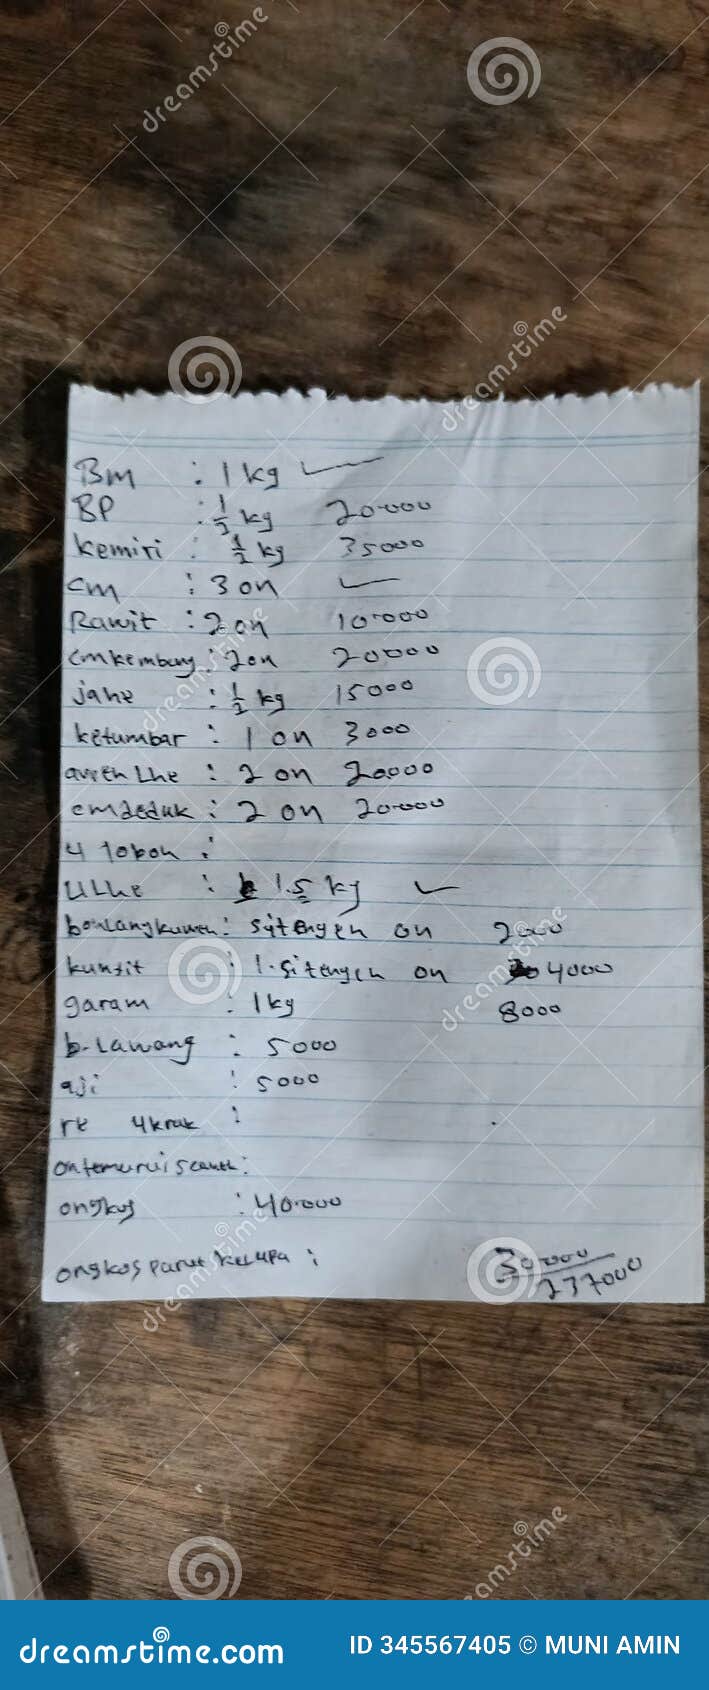 BM : 1 kg
BP : 1/2 kg 20.000
kemiri : 1/2 kg 35000
cm : 3 on
Rawit : 2 on 10.000
cmkembung : 2 on 20000
jahe : 1/2 kg 15000
ketumbar : 1 on 3000
: 2 on 20000
: 2 on 20.000
:
ULhe : 1.5 kg
: sitengeh on 2000
kunsit : 1.sitengeh on 4000
garam : 1 kg 8000
b-Lawang : 5000
aji : 5000
re 4krak :
:
ongkos : 40.000
ongkos parut kelapa : 30.000
237000
dreamstime
dreamstime
dreamstime
dreamstime
dreamstime
dreamstime
dreamstime.com
ID 345567405 © MUNI AMIN